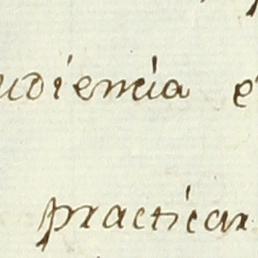 udiencia e
practicar